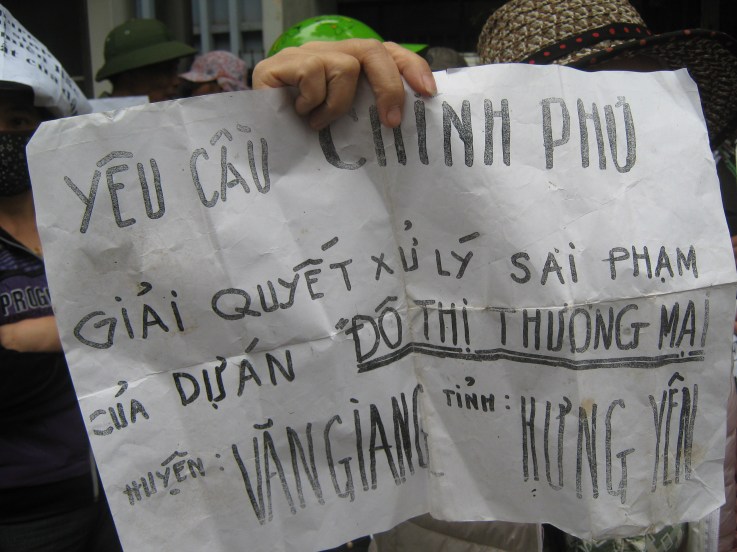 YÊU CẦU CHÍNH PHỦ
GIẢI QUYẾT XỬ LÝ SAI PHẠM
CỦA DỰ ÁN "ĐÔ THỊ THƯƠNG MẠI
HUYỆN: VĂN GIANG TỈNH: HƯNG YÊN
PROG